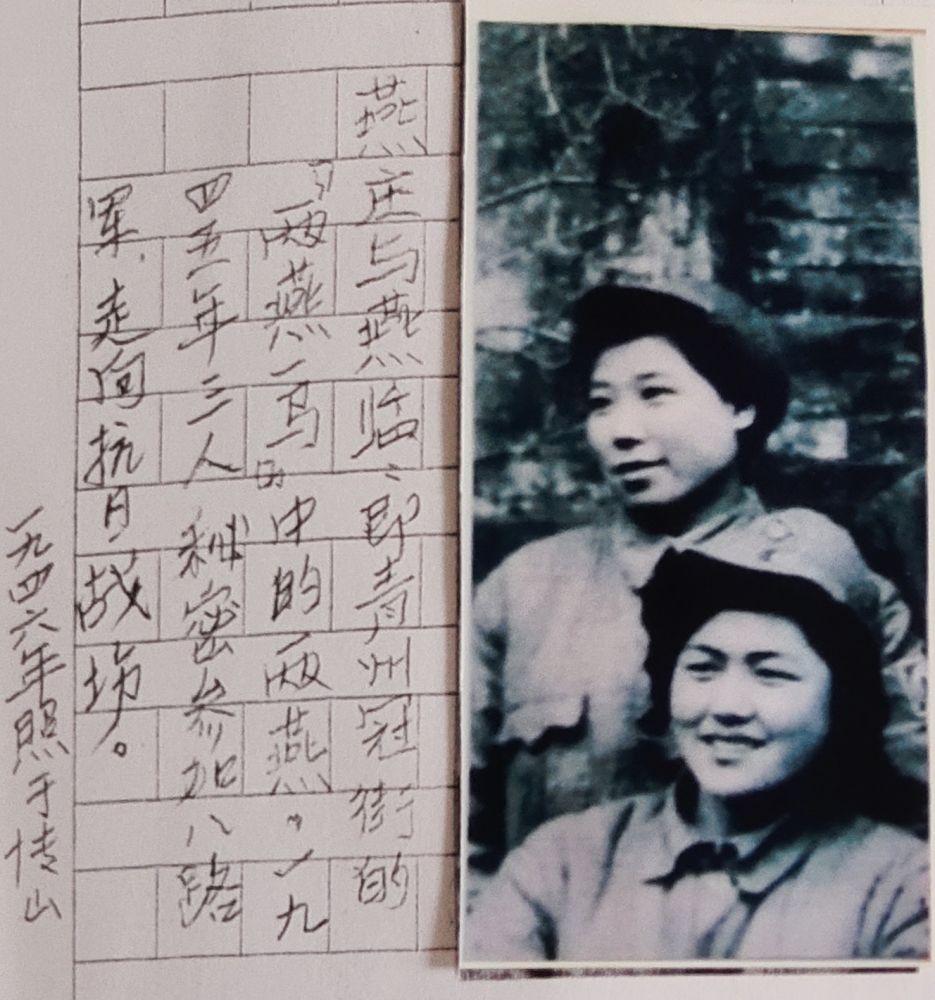 燕庄与燕临：即青州冠街的
「两燕一马」中的两燕。一九
四五年三人秘密参加八路
军，走向抗日战场。
一九四六年照于博山